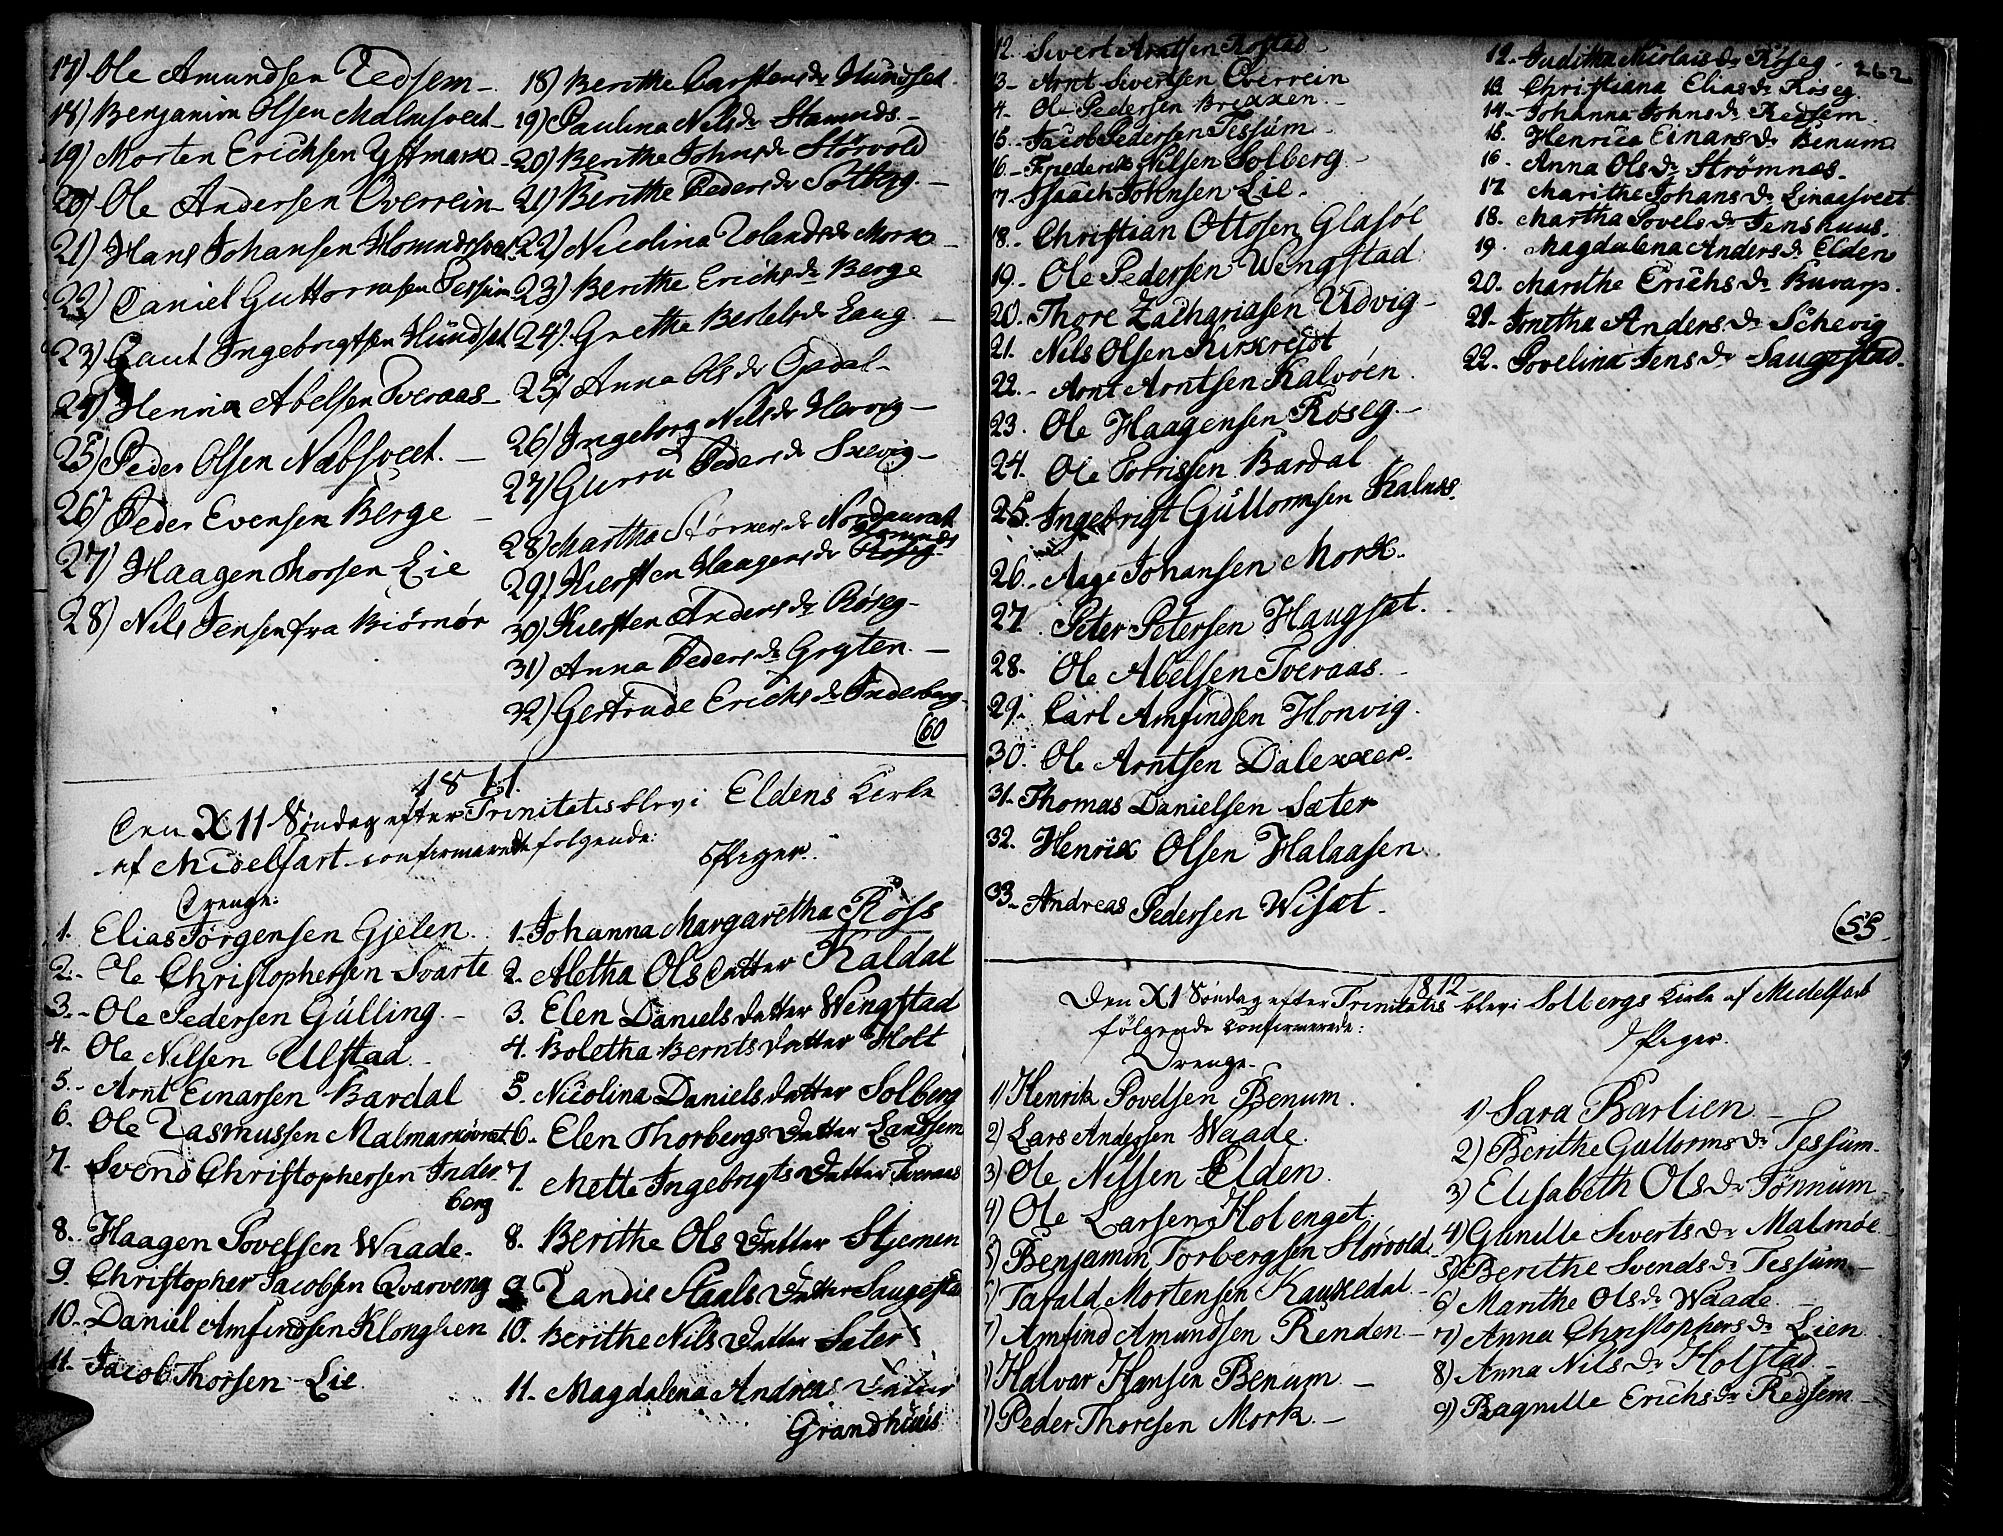 17) Ole Amundsen Redsem
18) Benjamin Olsen Malmsveet
19) Morten Erichsen Østmark
20) Ole Andersen Overrein
21) Hans Johansen
22) Daniel Guttormsen Tessum
23) Gaut Ingebrigtsen Hundset
24) Henric Abelsen Tveraas
25) Peder Olsen Næbsveet.
26) Peder Evensen Berge
27) Haagen Thorsen Lie
28) Nils Jensen fra Biørnør
18) Berithe Carstensdr Hundset
19) Paulina Nilsdr Stamnds.
20) Berithe Johnsdr Størvold
21) Berithe Pedersdr Solberg.
22) Nicolina Rolandsdr Mork
23) Berithe Erichsdr Berge
24) Grethe Bertelsdr Laug.
25) Anna Olsdr Opdal
26) Ingeborg Nilsdr Hervig
27) Gurru Pedersdr Skevig
28) Martha Størkersdr Nordaunet
29) Kiersten Haagensdr Røseg
30) Kiersten Andersdr Røseg
31) Anna Pedersdr Gryten.
32) Gertrude Erichsdr Inderberg
60
1811.
Den XII Søndag efter Trinitatis blev i Eldens Kirke
af Midelfart confirmerede følgende:
Drenge:
Piger.
1. Elias Jørgensen Gjelen.
2. Ole Christophersen Svarte
3. Ole Pedersen Gülling.
4. Ole Nilsen Ulstad
5. Arnt Einarsen Bardal
6. Ole Rasmussen
7. Svend Christophersen Inder
berg
8. Haagen Povelsen Waade.
9. Christopher Jacobsen Qvarveng
10. Daniel Amfindsen Klonglien
11. Jacob Thorsen Lie
1. Johanna Margaretha Röss
2. Aletha Olsdatter Kaldal
3. Elen Danielsdatter Wengstad
4. Boletha Berntsdatter Holt
5. Nicolina Danielsdatter Solberg
6. Elen Thorbergsdatter Landsem
7. Mette Ingebrigtsdatter Tveraas
8. Berithe Olsdatter Stjemen
9. Randie Staalsdatter Saugestad
10. Berithe Nilsdatter Sæter
11. Magdalena Andreasdatter
Grandhüus
12. Sivert Arntsen Rostad
13. Arnt Sivertsen Overrein
4. Ole Pedersen Brekken.
15. Jacob Pedersen Tessüm
16. Frederik Nilsen Solberg
17. Isaach Johnsen Lie.
18. Christian Ottosen Glasöe
19. Ole Pedersen Wengstad
20. Thore Zachariasen Udvig
21. Nils Olsen Kirkreidt
22. Arnt Arntsen Kalvöen
23. Ole Haagensen Røseg.
24. Ole Torrissen Bardal
25. Ingebrigt Güttormsen Kalnes.
26. Aage Johansen Mork.
27. Peter Petersen Haugset.
28. Ole Abelsen Tveraas
29. Carl Amfindsen Honvig.
30. Ole Arntsen Dalekker.
31. Thomas Danielsen Sæter
32. Henrik Olsen Halaasen
33. Andreas Pedersen Wisæt.
262
12. Juditha Nicolaisdr Røseg
13 Christiana Eliasdr Røseg.
14. Johanna Johnsdr Redsem
15. Henrica Einarsdr Benum
16. Anna Olsdr Strømnæs.
17. Marithe Johansdr Linaasveet
18. Martha Povelsdr Jenshuus.
19. Magdalena Andersdr Elden
20. Marithe Erichsdr Buvarp.
21. Jonetha Andersdr Schevig
22. Povelina Jensdr Saugestad.
55
1812
Den XI Søndag efter Trinitatis blev i Solbergs Kirke af Midelfart
følgende Confirmerede:
Drenge.
Piger.
1) Henrik Povelsen Benum.
2) Lars Andersen Waade.
3) Ole Nilssen Elden.
4) Ole Larsen Holenget.
5) Benjamin Torbergsen Storvold
) Tarald Mortensen Kaukedal
) Amfind Amundsen Renden
) Halvar Hansen Benum
) Peder Thoresen Mork
1) Sara Barlien
2) Berithe Guttormsdr Tessum.
3) Elisabeth Olsdr Tønnüm
4) Gunille Sivertsdr Malmøe
5) Berithe Svendsdr Tessum
6) Marithe Olsdr Waade
7) Anna Christophersdr Lien
8) Anna Nilsdr Holstad
9) Ragnille Erichsdr Redsem